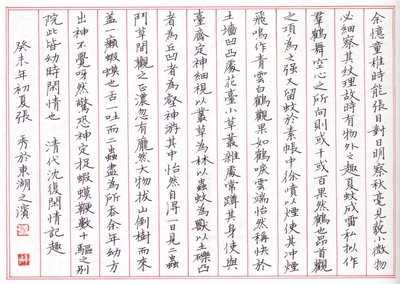 余憶童稚時能張目對日明察秋毫見藐小微物
必細察其紋理故時有物外之趣夏蚊成雷私擬作
羣鶴舞空心之所向則或千或百果然鶴也昂首觀
之項為之强又留蚊於素帳中徐噴以煙使其冲煙
飛鳴作青雲白鶴觀果如鶴唳雲端怡然稱快於
土墻凹凸處花臺小草叢雜處常蹲其身使與
臺齊定神細視以叢草為林以蟲蚊為獸以土礫凸
者為丘凹者為壑神游其中怡然自得一日見二蟲
鬥草間觀之正濃忽有龐然大物拔山倒樹而來
蓋一癩蝦蟆也舌一吐而二蟲盡為所吞余年幼方
出神不覺呀然驚恐神定捉蝦蟆鞭數十驅之別
院此皆幼時閒情也 清代沈復閒情記趣
癸未年初夏張 秀於東湖之濱